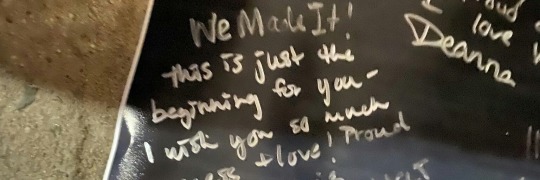 We Made It!
this is just the
beginning for you-
I wish you so much
+ love! Proud
love
Deanna